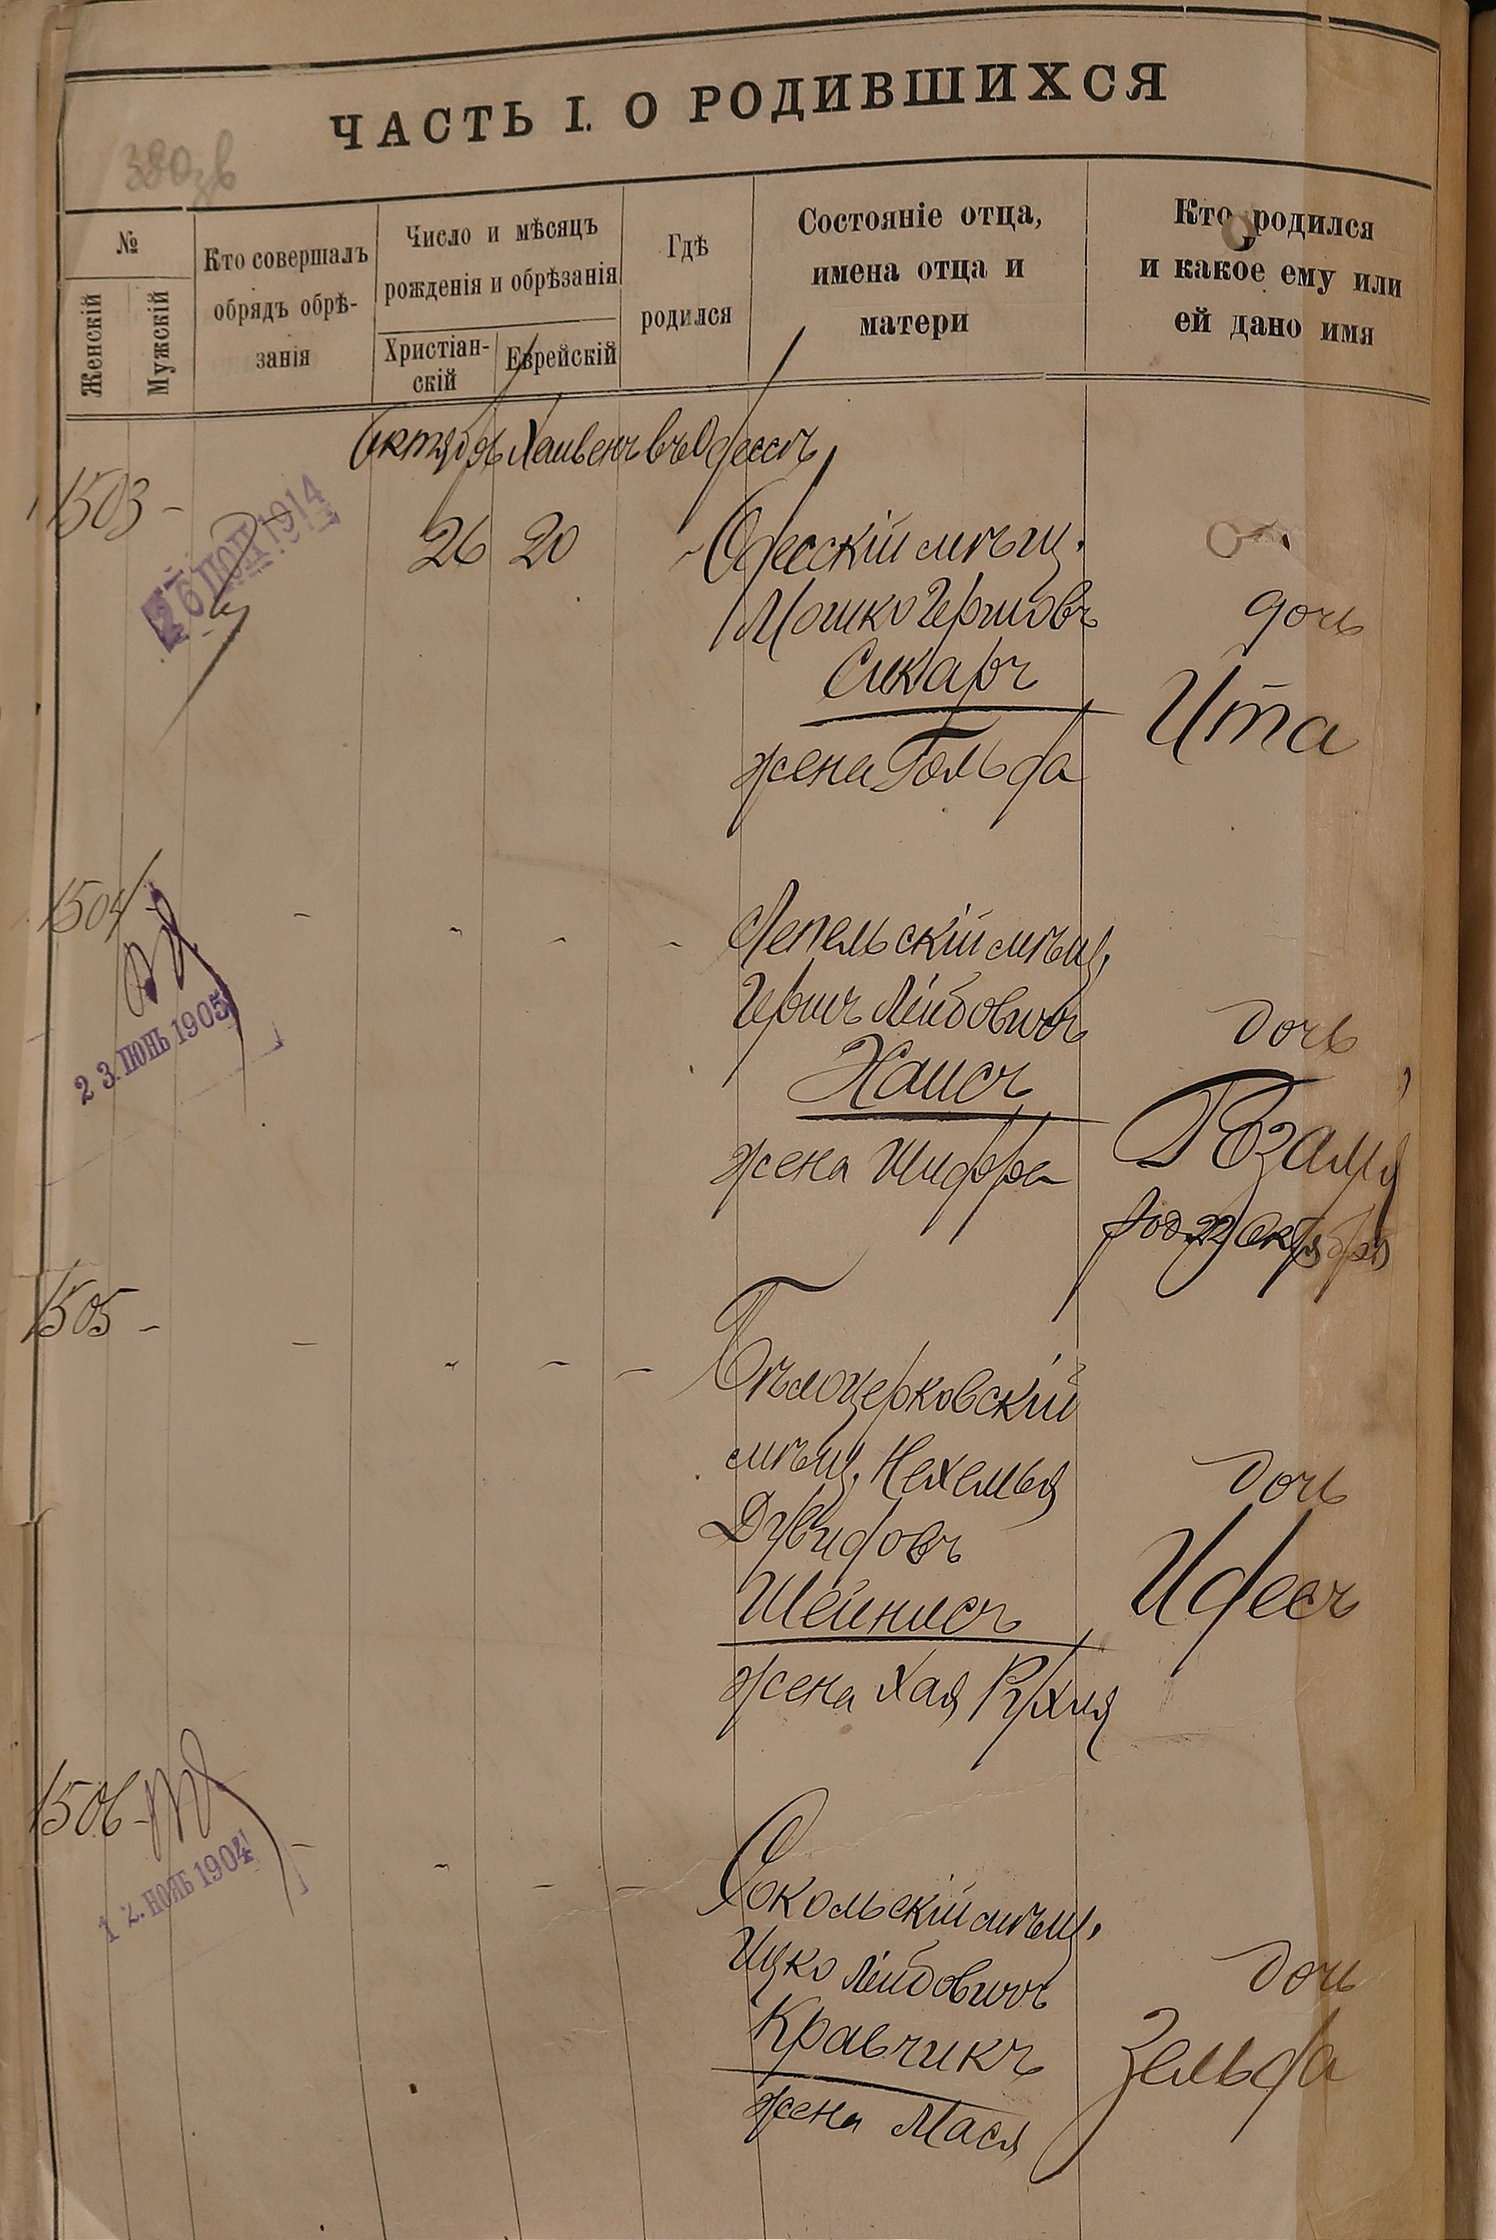 ЧАСТЬ I. О РОДИВШИХСЯ
380зв
№
Женскій
Мужскій
Кто совершалъ
обрядъ обрѣ-
занія
Число и мѣсяцъ
рожденія и обрѣзанія
Христіан-
скій
Еврейскій
Гдѣ
родился
Состояніе отца,
имена отца и
матери
Кто родился
и какое ему или
ей дано имя
Октябрь Хашвенъ въ Одессѣ
1503 -
26 20
Одесскій мѣщ.
Мошко Гершовъ
Сикаръ
жена Гольда
дочь
Ита
1504
23. ІЮНЬ 1905
Лепельскій мѣщ.
Гершъ Лейбовичъ
Хаисъ
жена Шифра
дочь
Розалія
род. 22 Октября
1505 -
Бѣлоцерковскій
мѣщ. Нехемья
Дувидовъ
Шейнисъ
жена Хая Рухля
дочь
Идесъ
1506 -
12. НОЯБ 1904
Сокольскій мѣщ.
Ицко Лейбовичъ
Кравчикъ
жена Мася
дочь
Зельда